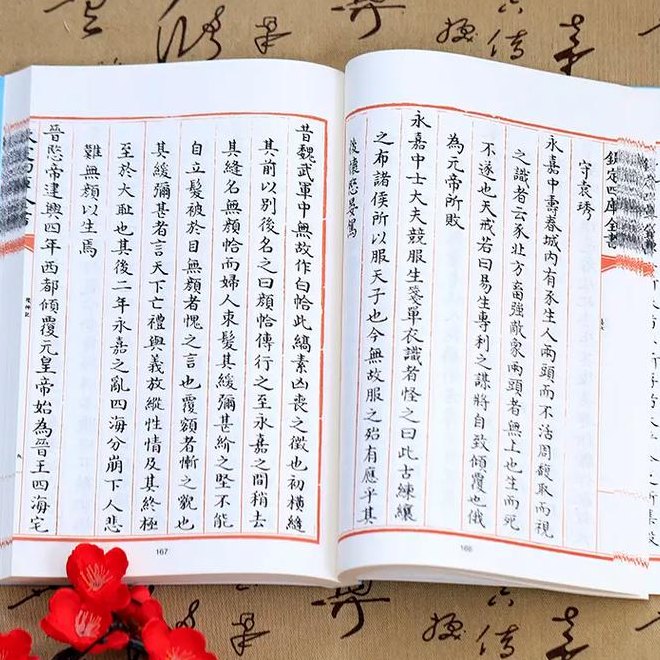 欽定四庫全書
守袁琇
永嘉中壽春城內有豕生人兩頭而不活周馥取而視
之識者云豕北方畜強敵象兩頭者無上也生而死
不遂也天戒若曰易生專利之謀將自致傾覆也俄
為元帝所敗
永嘉中士大夫競服生箋單衣識者怪之曰此古練纕
之布諸侯所以服天子也今無故服之殆有應乎其
後懷愍晏駕
166
昔魏武軍中無故作白帢此縞素凶喪之徵也初橫縫
其前以別後名之曰顏帢傳行之至永嘉之間稍去
其縫名無顏帢而婦人束髮其緩彌甚紒之堅不能
自立髮被於目無顏者愧之言也覆額者慚之貌也
其緩彌甚者言天下亡禮與義放縱性情及其終極
至於大恥也其後二年永嘉之亂四海分崩下人悲
難無顏以生焉
晉愍帝建興四年西都傾覆元皇帝始為晉王四海宅
搜神記
167